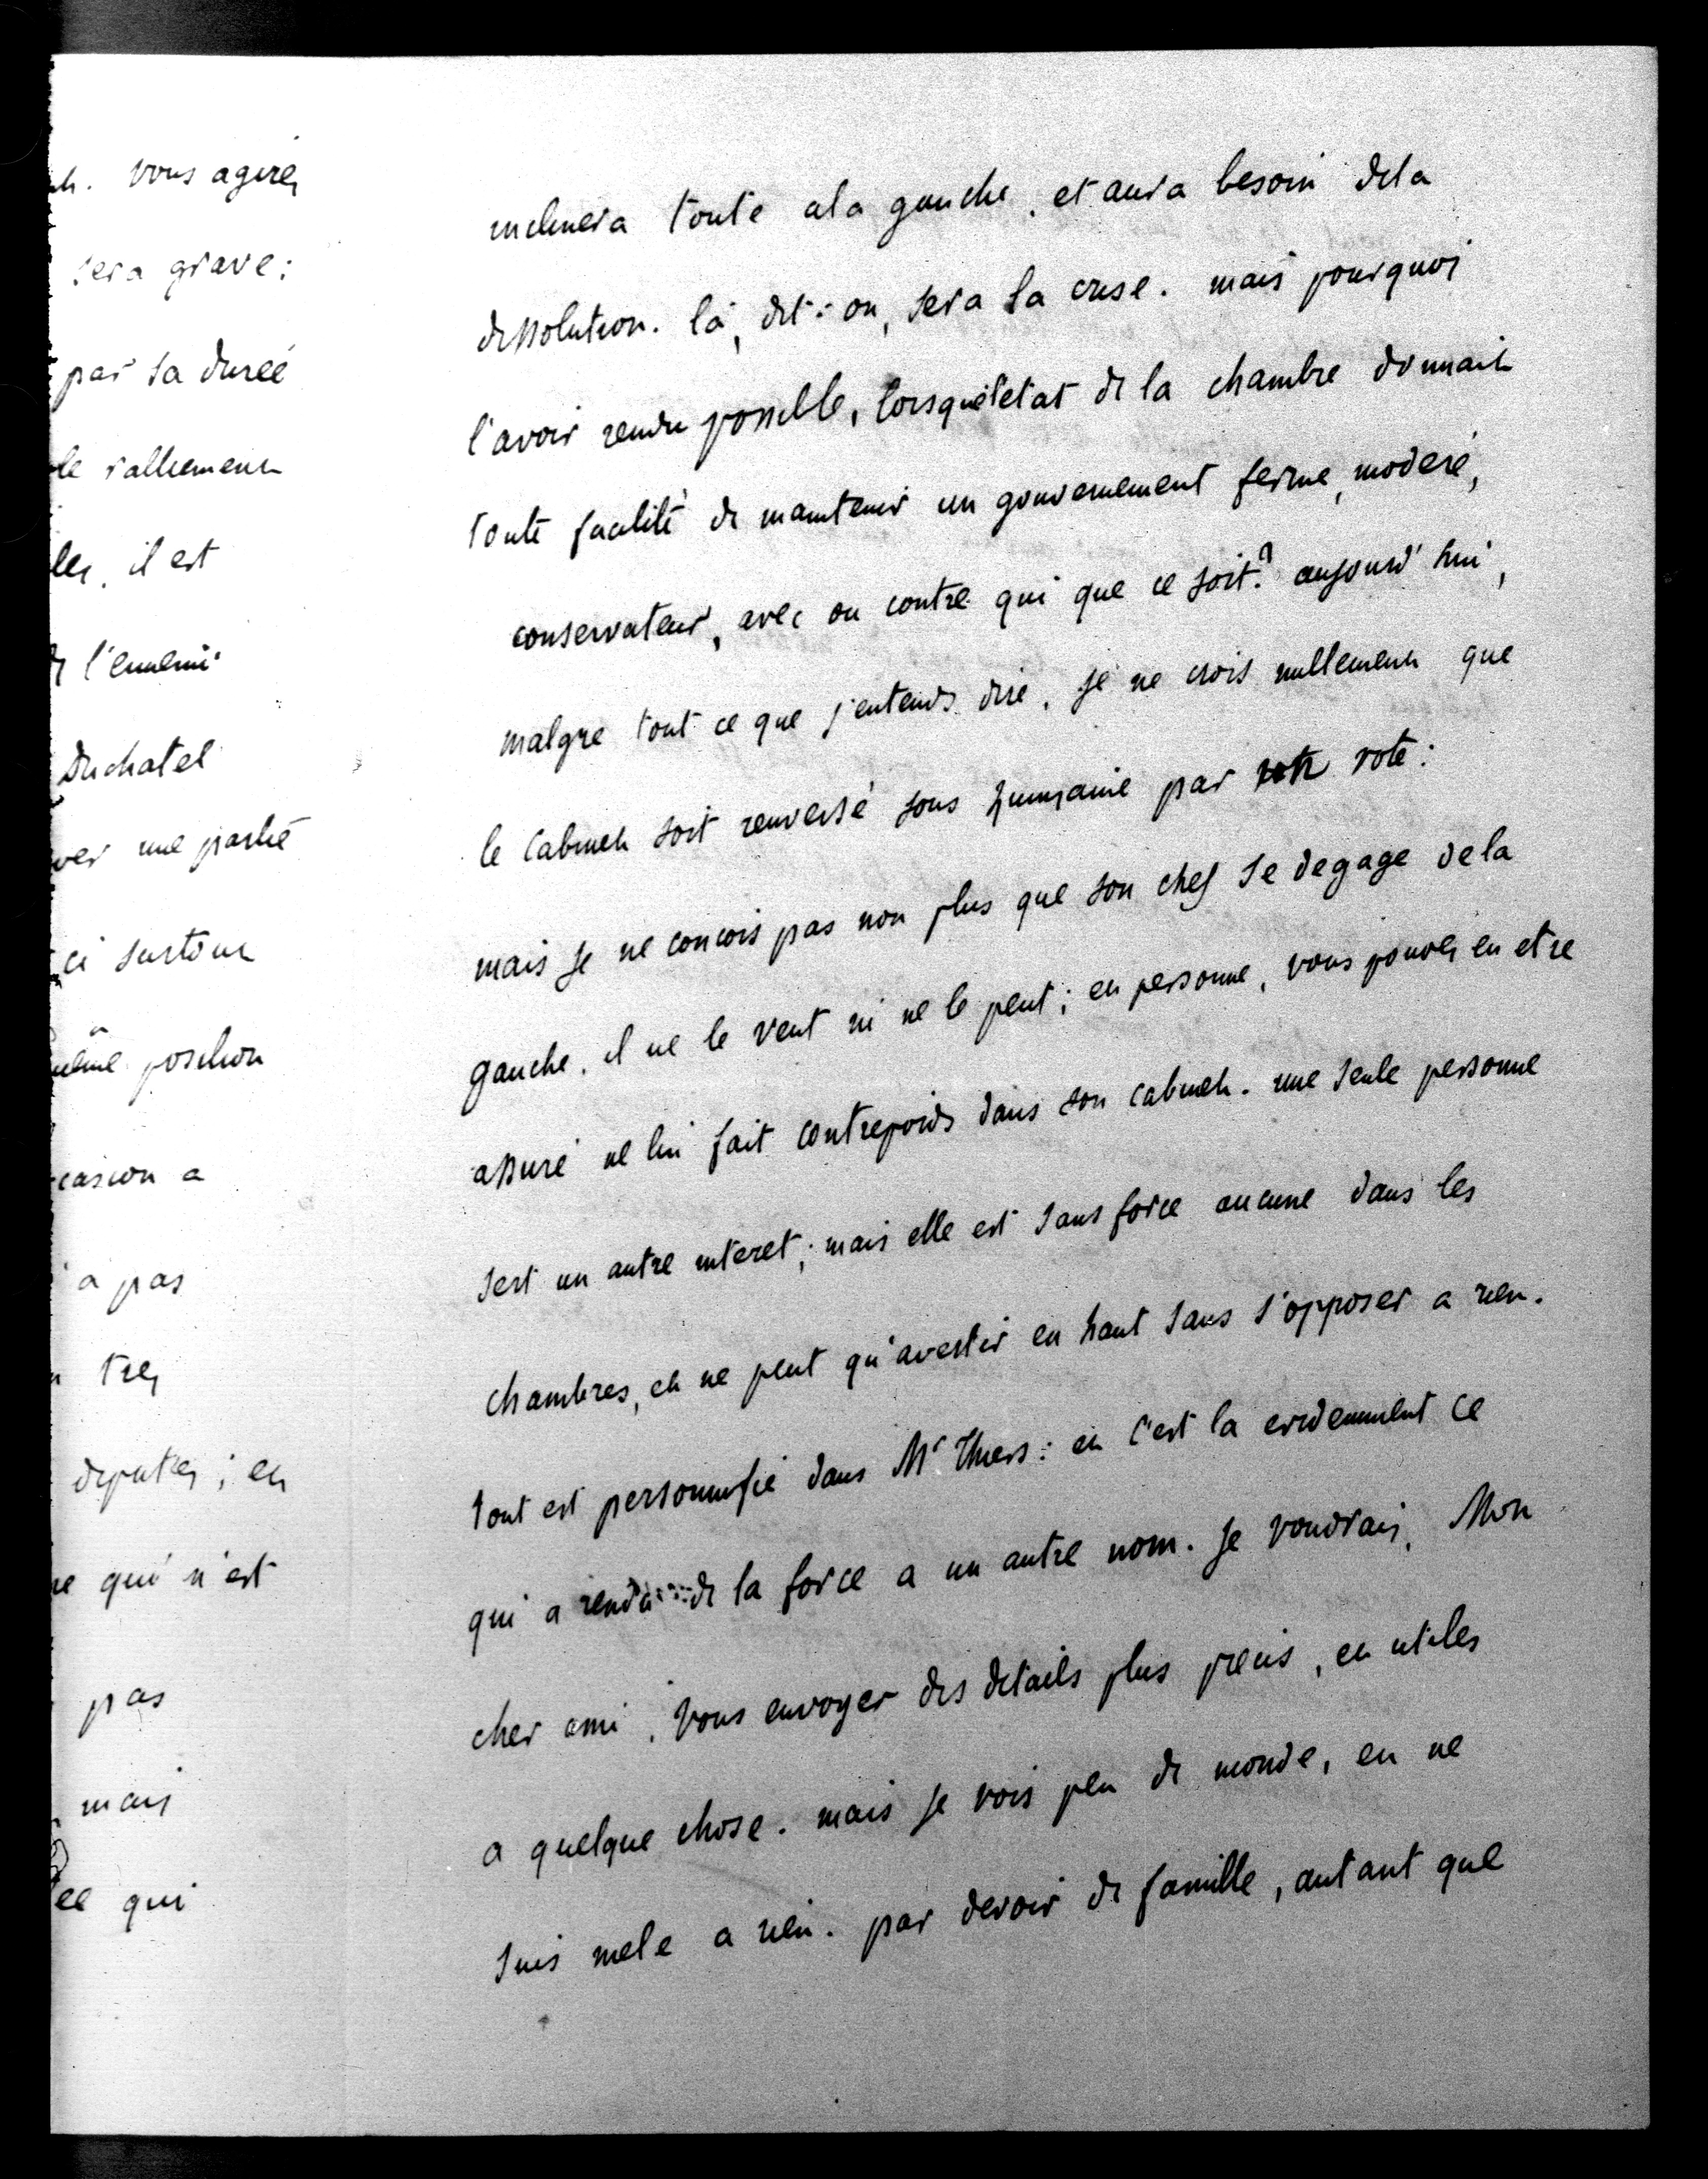 vous agirés
sera grave;
par sa dureé
le ralliement
il est
l'ennemi
Duchatel
une partie
ci surtout
même position
a
a pas
tres
deputés; et
qui n'est
pas
mais
qui
inclinera toute a la gauche, et aura besoin dela
dissolution. là, dit-on, sera la crise. mais pourquoi
l'avoir rendu possible, lorsque l'etat de la chambre donnait
toute facilité de maintenir un gouvernement ferme, moderé,
conservateur, avec ou contre qui que ce soit? aujourd'hui,
malgre tout ce que j'entends dire, je ne crois nullement que
le cabinet soit renversé sous quinzaine par vote:
mais je ne concois pas non plus que son chef se degage dela
gauche. il ne le veut ni ne le peut; et personne, vous pouvés en etre
assuré ne lui fait contrepoids dans son cabinet. une seule personne
sert un autre interet; mais elle est sans force aucune dans les
chambres, et ne peut qu'avertir en haut sans s'opposer a rien.
tout est personnifié dans Mr Thiers: et c'est la evidemment ce
qui a rendu de la force a un autre nom. je voudrais, Mon
cher ami, vous envoyer des details plus precis, et utiles
a quelque chose. mais je vois peu de monde, et ne
suis mele a rien. par devoir de famille, autant que